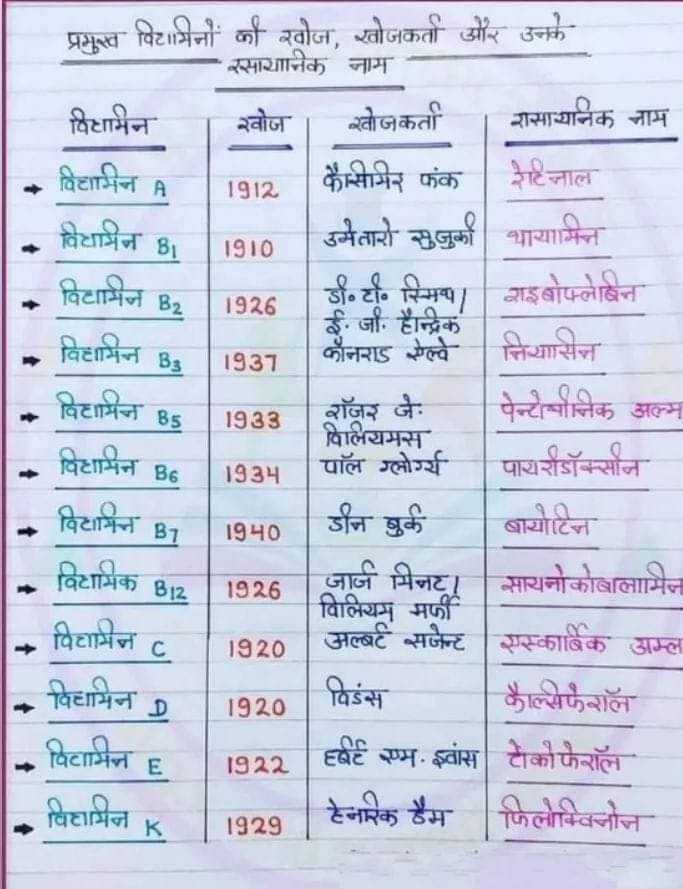 प्रमुख विटामिनों की खोज, खोजकर्ता और उनके
रसायानिक नाम
विटामिन खोज खोजकर्ता रासायनिक नाम
→ विटामिन A 1912 कैसीमिर फंक रेटिनाल
→ विटामिन B1 1910 उमेतारो सुजुकी थायामिन
→ विटामिन B2 1926 डी॰ टी॰ स्मिथ/ राइबोफ्लेबिन
ई. जी. हैन्ड्रिक
→ विटामिन B3 1937 कौनराड एल्वे नियासिन
→ विटामिन B5 1933 रॉजर जे: पेन्टोथौनिक अल्म
विलियमस
→ विटामिन B6 1934 पॉल ग्लोर्ग्य पायरीडॉक्सीन
→ विटामिन B7 1940 डीन बुर्क बायोटिन
→ विटामिक B12 1926 जार्ज मिनट/ सायनोकोबालामिन
विलियम मर्फी
→ विटामिन C 1920 अल्बर्ट सजेन्ट एस्कार्बिक अम्ल
→ विटामिन D 1920 विडंस कैल्सिफेरॉल
→ विटामिन E 1922 हर्बर्ट एम. इवांस टोकोफेरॉल
→ विटामिन K 1929 हेनरिक डैम फिलोक्विनोन